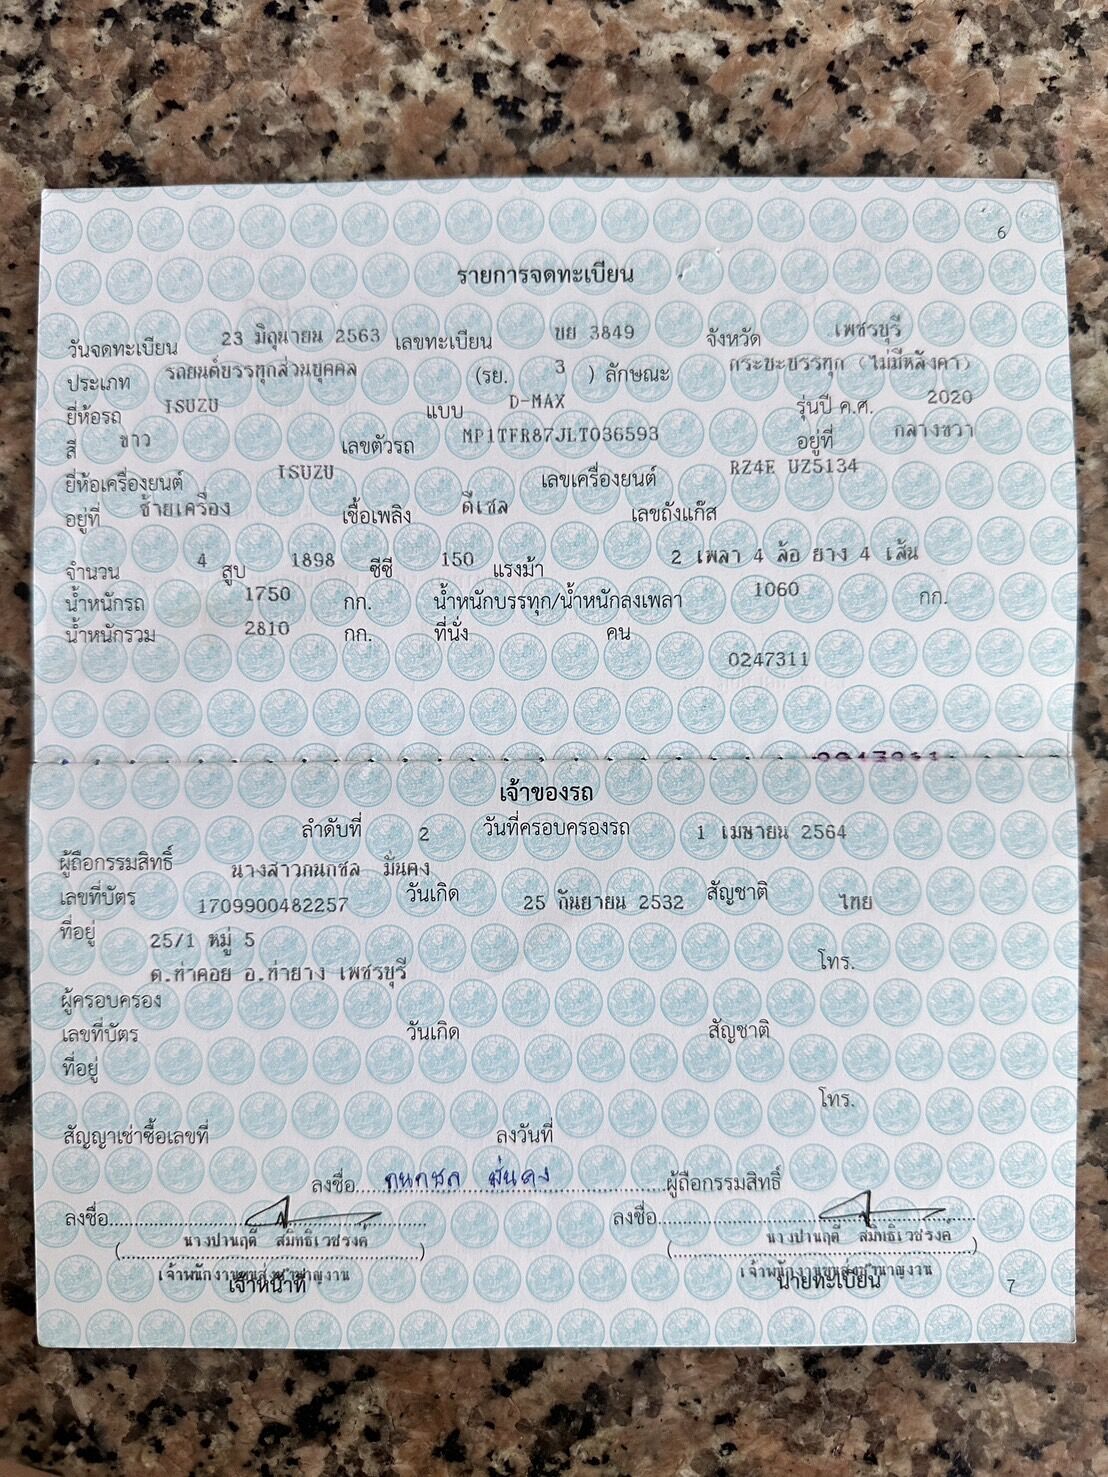 6
รายการจดทะเบียน
วันจดทะเบียน 23 มิถุนายน 2563 เลขทะเบียน ขย 3849 จังหวัด เพชรบุรี
ประเภท รถยนต์บรรทุกส่วนบุคคล (รย. 3 ) ลักษณะ กระบะบรรทุก (ไม่มีหลังคา)
ยี่ห้อรถ ISUZU แบบ D-MAX รุ่นปี ค.ศ. 2020
สี ขาว เลขตัวรถ MP1TFR87JLT036593 อยู่ที่ กลางขวา
ยี่ห้อเครื่องยนต์ ISUZU เลขเครื่องยนต์ RZ4E UZ5134
อยู่ที่ ซ้ายเครื่อง เชื้อเพลิง ดีเซล เลขถังแก๊ส
จำนวน 4 สูบ 1898 ซีซี 150 แรงม้า 2 เพลา 4 ล้อ ยาง 4 เส้น
น้ำหนักรถ 1750 กก. น้ำหนักบรรทุก/น้ำหนักลงเพลา 1060 กก.
น้ำหนักรวม 2810 กก. ที่นั่ง คน
0247311
เจ้าของรถ
ลำดับที่ 2 วันที่ครอบครองรถ 1 เมษายน 2564
ผู้ถือกรรมสิทธิ์ นางสาวกนกชล มั่นคง
เลขที่บัตร 1709900482257 วันเกิด 25 กันยายน 2532 สัญชาติ ไทย
ที่อยู่ 25/1 หมู่ 5
ต.ท่าคอย อ.ท่ายาง เพชรบุรี โทร.
ผู้ครอบครอง
เลขที่บัตร วันเกิด สัญชาติ
ที่อยู่
โทร.
สัญญาเช่าซื้อเลขที่ ลงวันที่
ลงชื่อ กนกชล มั่นคง ผู้ถือกรรมสิทธิ์
ลงชื่อ ลงชื่อ
(นางปานฤดี สมิทธิเวชรงค์) (นางปานฤดี สมิทธิเวชรงค์)
เจ้าพนักงานขนส่งชำนาญงาน เจ้าพนักงานขนส่งชำนาญงาน
เจ้าหน้าที่ นายทะเบียน 7